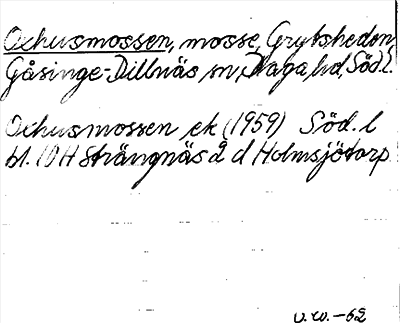 Oxhusmossen, mosse, Grytshedon
Gåsinge-Dillnäs sn, Daga hd, Söd.l.
Oxhusmossen ek (1959) Söd. l
bl. 10 H Strängnäs d Holmsjötorp
U.W.-62